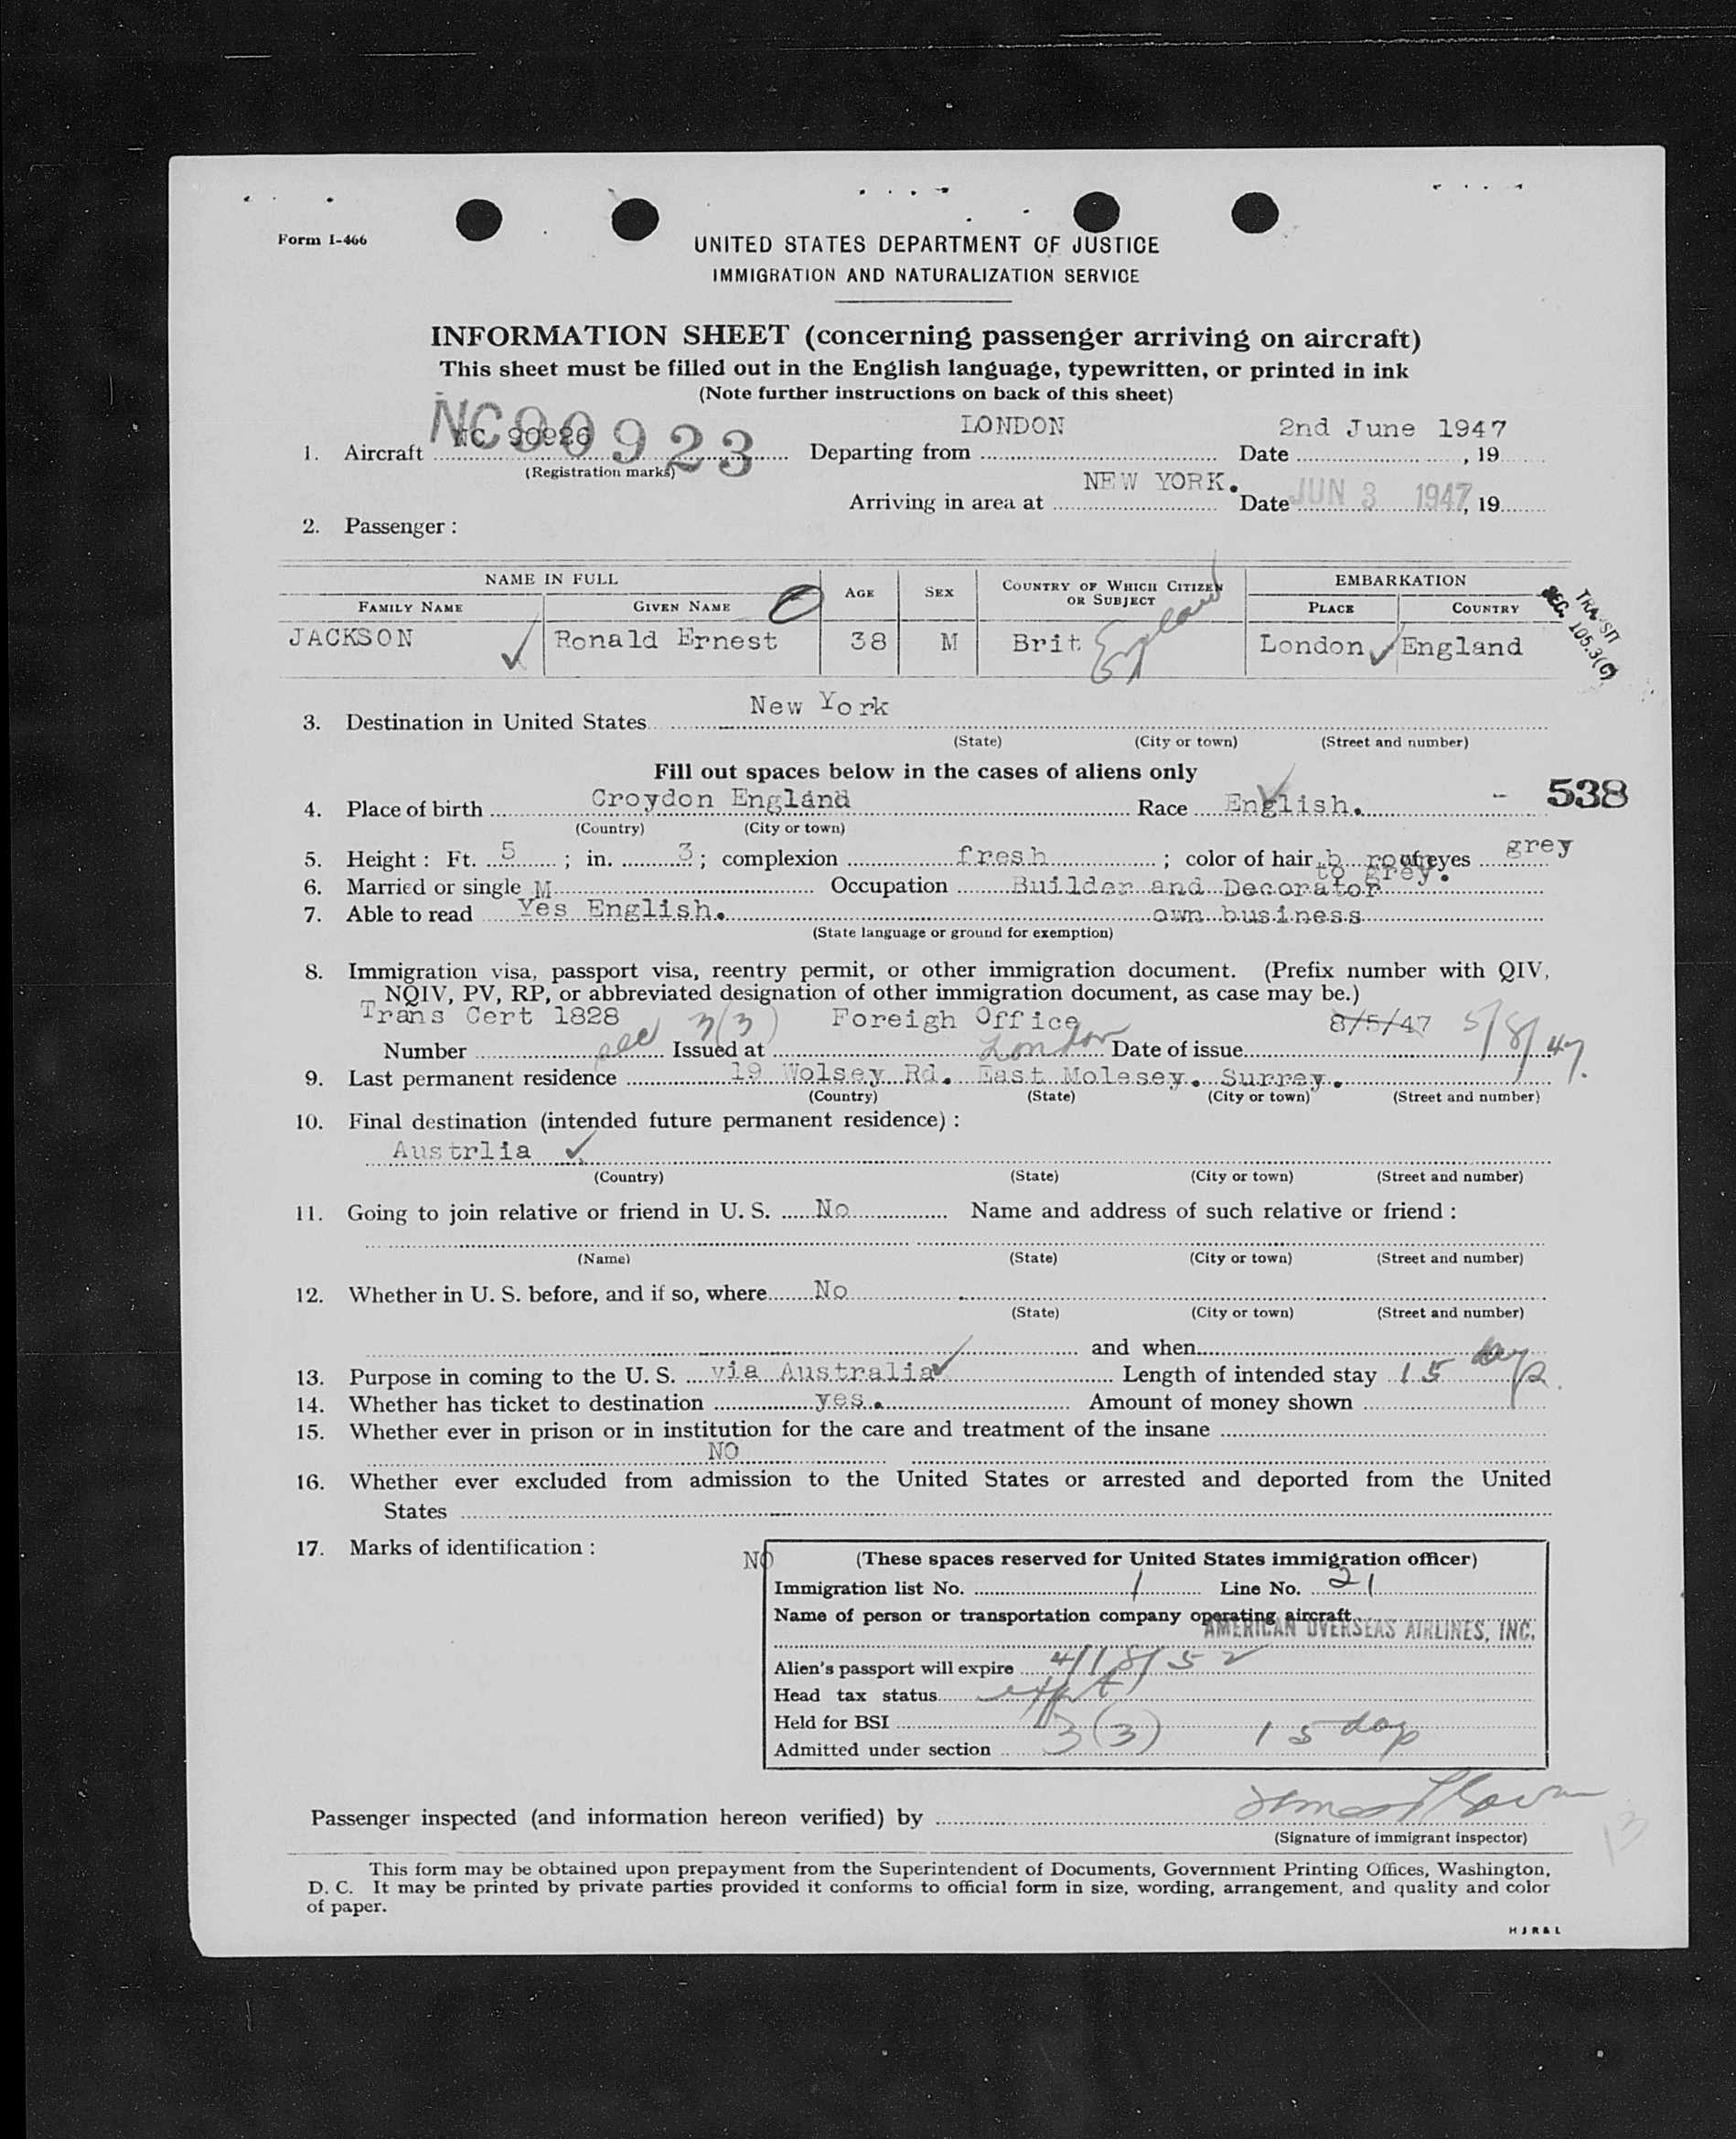 Form I-466
UNITED STATES DEPARTMENT OF JUSTICE
IMMIGRATION AND NATURALIZATION SERVICE
INFORMATION SHEET (concerning passenger arriving on aircraft)
This sheet must be filled out in the English language, typewritten, or printed in ink
(Note further instructions on back of this sheet)
NC90923
1. Aircraft NC 90926 Departing from LONDON Date 2nd June 1947, 19
(Registration marks)
Arriving in area at NEW YORK. Date JUN 3 1947, 19
2. Passenger :
NAME IN FULL AGE SEX COUNTRY OF WHICH CITIZEN OR SUBJECT EMBARKATION
FAMILY NAME GIVEN NAME PLACE COUNTRY
JACKSON Ronald Ernest 38 M Brit England London England
TRANSIT
SEC. 105.3(C)
3. Destination in United States New York
(State) (City or town) (Street and number)
Fill out spaces below in the cases of aliens only
538
4. Place of birth Croydon England Race English.
(Country) (City or town)
5. Height : Ft. 5 ; in. 3 ; complexion fresh ; color of hair brown to grey. of eyes grey
6. Married or single M Occupation Builder and Decorator
7. Able to read Yes English. own business
(State language or ground for exemption)
8. Immigration visa, passport visa, reentry permit, or other immigration document. (Prefix number with QIV,
NQIV, PV, RP, or abbreviated designation of other immigration document, as case may be.)
Trans Cert 1828 3(3) Foreigh Office 8/5/47 5/8/47.
Number Issued at London Date of issue
9. Last permanent residence 19 Wolsey Rd. East Molesey. Surrey.
(Country) (State) (City or town) (Street and number)
10. Final destination (intended future permanent residence) :
Austrlia
(Country) (State) (City or town) (Street and number)
11. Going to join relative or friend in U. S. No Name and address of such relative or friend :
(Name) (State) (City or town) (Street and number)
12. Whether in U. S. before, and if so, where No
(State) (City or town) (Street and number)
and when
13. Purpose in coming to the U. S. via Australia Length of intended stay 15 days
14. Whether has ticket to destination yes. Amount of money shown
15. Whether ever in prison or in institution for the care and treatment of the insane
NO
16. Whether ever excluded from admission to the United States or arrested and deported from the United
States
17. Marks of identification :
NO
(These spaces reserved for United States immigration officer)
Immigration list No. 1 Line No. 21
Name of person or transportation company operating aircraft
AMERICAN OVERSEAS AIRLINES, INC.
Alien's passport will expire 4/18/52
Head tax status
Held for BSI
Admitted under section 3(3) 15 days
Passenger inspected (and information hereon verified) by
(Signature of immigrant inspector)
13
This form may be obtained upon prepayment from the Superintendent of Documents, Government Printing Offices, Washington,
D. C. It may be printed by private parties provided it conforms to official form in size, wording, arrangement, and quality and color
of paper.
H J R & L